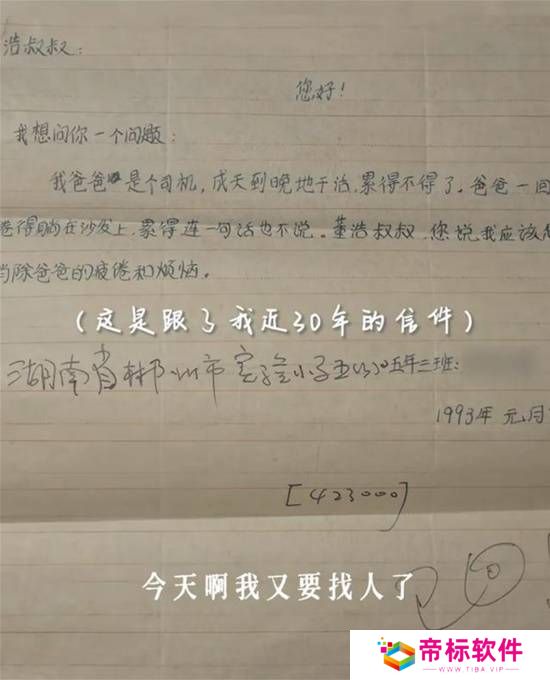 浩叔叔：
您好！
我想问你一个问题：
我爸爸是个司机，成天到晚地干活，累得不得了。爸爸一回
卷得躺在沙发上，累得连一句话也不说。董浩叔叔，您说我应该怎
当除爸爸的疲倦和烦恼。
（这是跟了我近30年的信件）
湖南省郴州市实验小学五年三班：
1993年元月
[423000]
今天啊我又要找人了
帝标软件
WWW.TIBA.VIP